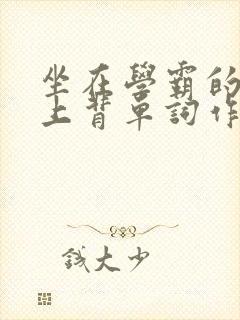 坐在學霸的
上背單詞作
錢大少